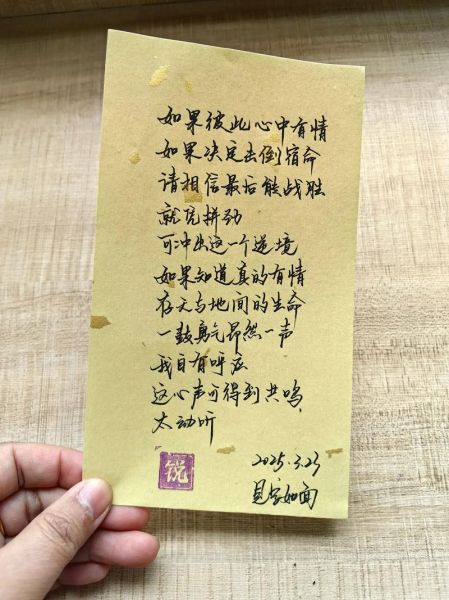 如果彼此心中有情
如果决定击倒宿命
请相信最后能战胜
就凭拼劲
可冲出这一个逆境
如果知道真的有情
在天与地间的生命
一鼓勇气昂然一声
我自有呼应
这心声可得到共鸣
太动听
锐
2025.3.23
见字如面